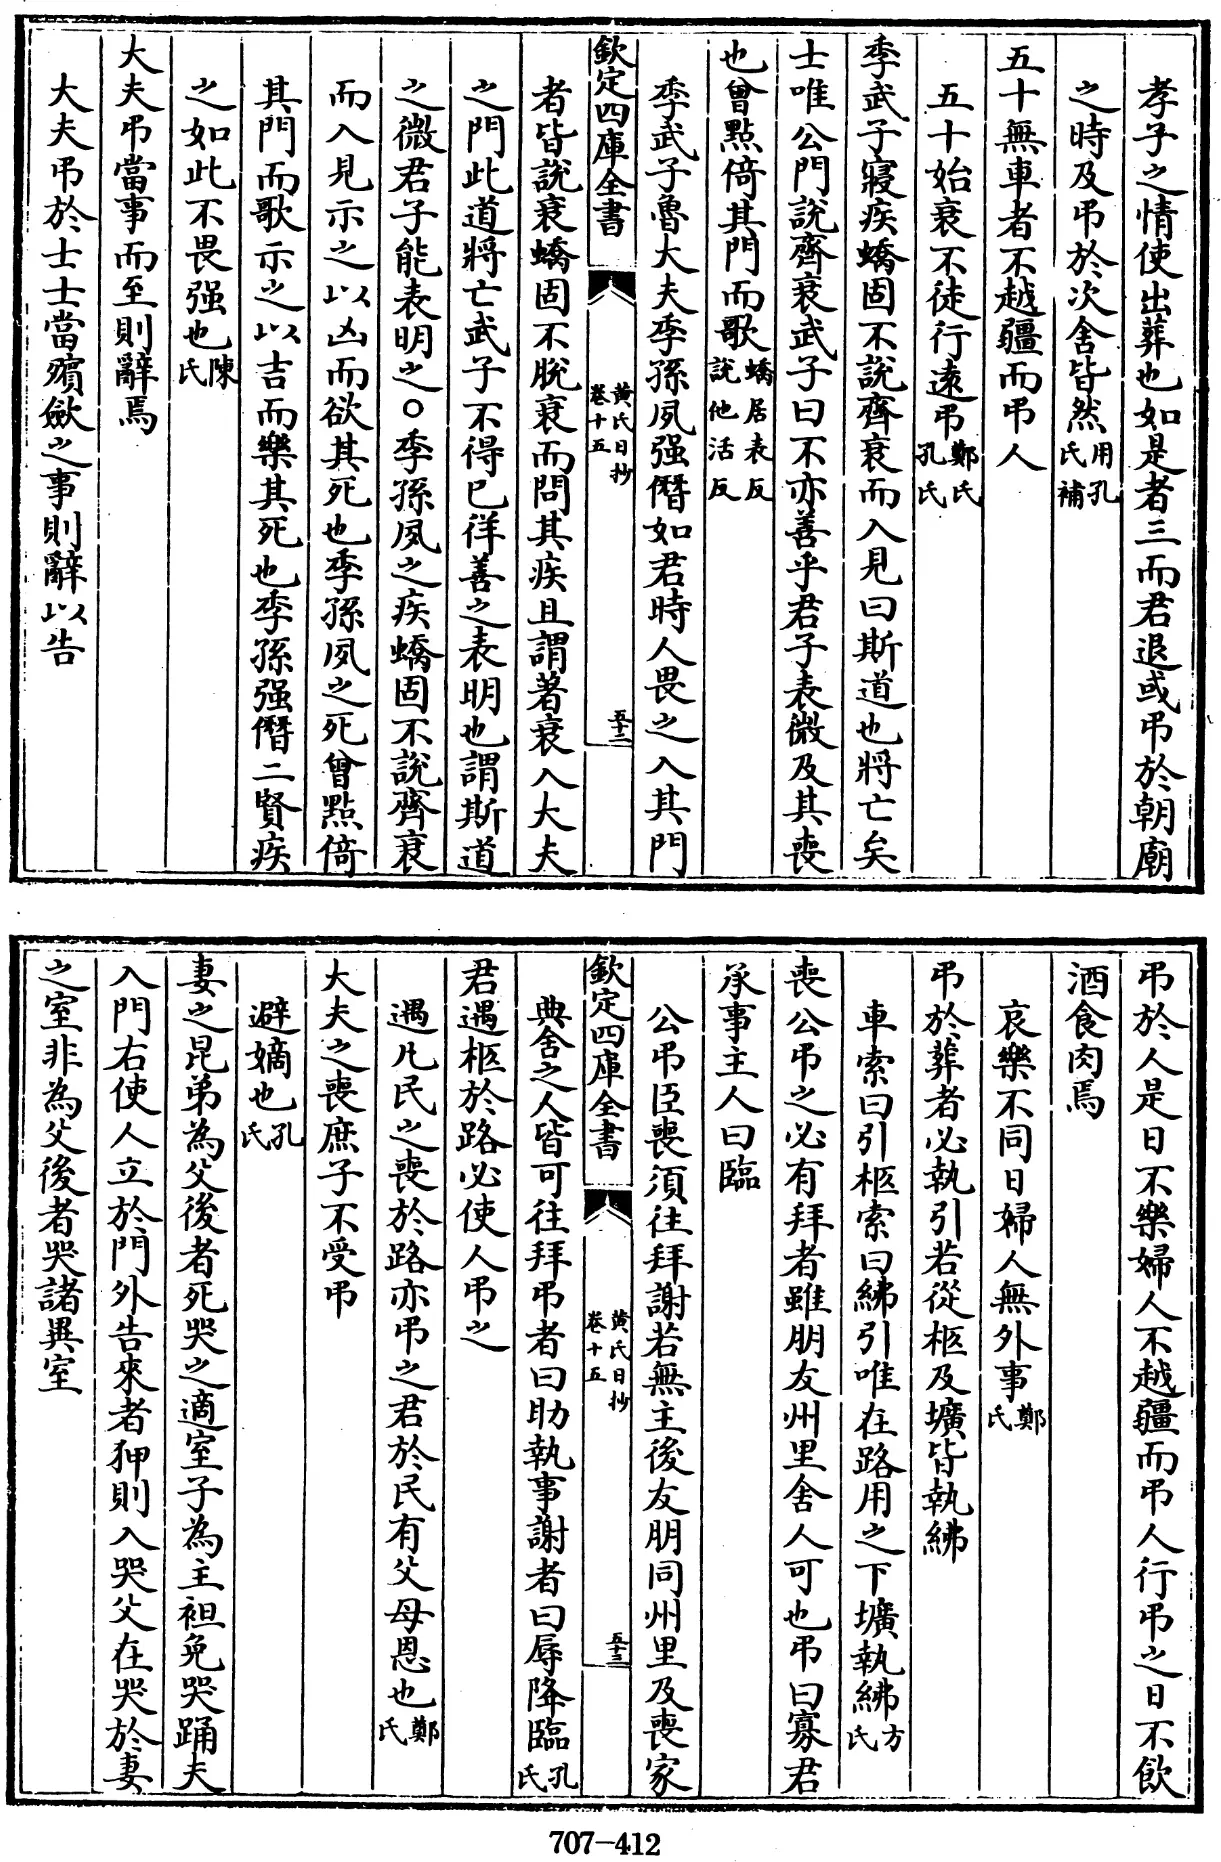 孝子之情使出葬也如是者三而君退或弔於朝廟
之時及弔於次舍皆然用孔氏補
五十無車者不越疆而弔人
五十始衰不徒行遠弔鄭氏孔氏
季武子寢疾蟜固不說齊衰而入見曰斯道也將亡矣
士唯公門說齊衰武子曰不亦善乎君子表微及其喪
也曾點倚其門而歌蟜居表反說他活反
季武子魯大夫季孫夙强僭如君時人畏之入其門
欽定四庫全書
黄氏日抄
卷十五
五十二
者皆說衰蟜固不脫衰而問其疾且謂著衰入大夫
之門此道將亡武子不得已佯善之表明也謂斯道
之微君子能表明之○季孫夙之疾蟜固不說齊衰
而入見示之以凶而欲其死也季孫夙之死曾點倚
其門而歌示之以吉而樂其死也季孫强僭二賢疾
之如此不畏强也陳氏
大夫弔當事而至則辭焉
大夫弔於士士當殯歛之事則辭以告
弔於人是日不樂婦人不越疆而弔人行弔之日不飲
酒食肉焉
哀樂不同日婦人無外事鄭氏
弔於葬者必執引若從柩及壙皆執紼
車索曰引柩索曰紼引唯在路用之下壙執紼方氏
喪公弔之必有拜者雖朋友州里舍人可也弔曰寡君
承事主人曰臨
公弔臣喪須往拜謝若無主後友朋同州里及喪家
欽定四庫全書
黄氏日抄
卷十五
五十三
典舍之人皆可往拜弔者曰助執事謝者曰辱降臨孔氏
君遇柩於路必使人弔之
遇凡民之喪於路亦弔之君於民有父母恩也鄭氏
大夫之喪庶子不受弔
避嫡也孔氏
妻之昆弟為父後者死哭之適室子為主袒免哭踊夫
入門右使人立於門外告來者狎則入哭父在哭於妻
之室非為父後者哭諸異室
707-412